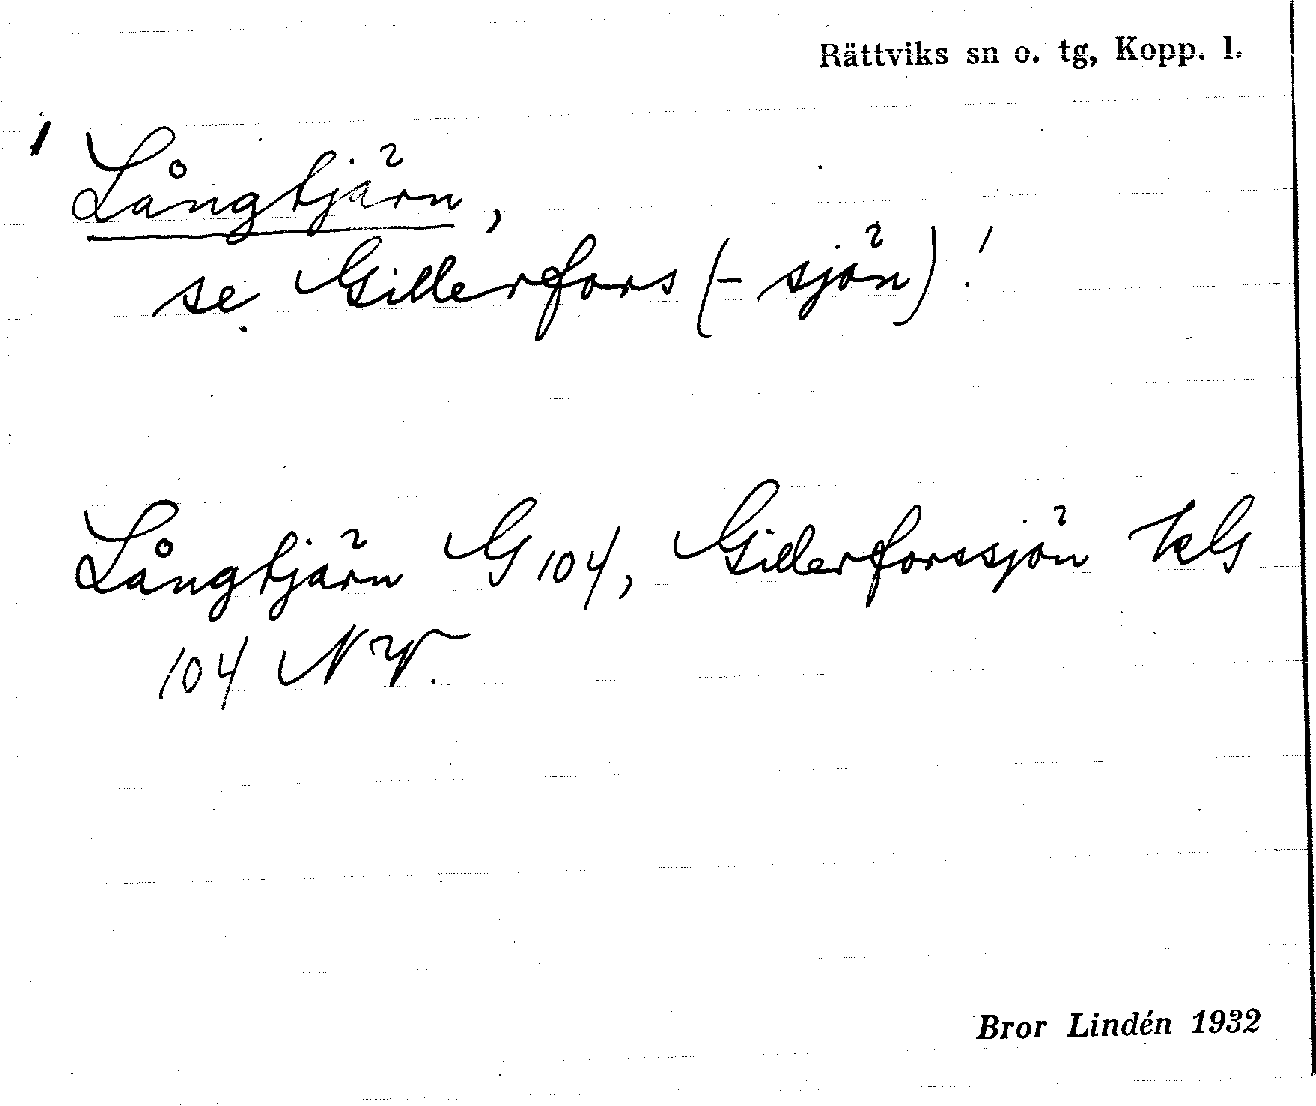 Rättviks sn o. tg, Kopp. l.
Långtjärn,
se Gillerfors (-sjön)!
Långtjärn G 104, Gillerforssjön kG
104 NV.
Bror Lindén 1932